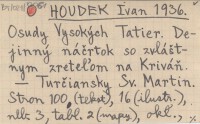 HOUDEK Ivan 1936.
Osudy Vysokých Tatier. De-
jinný náčrtok so zvlášt-
nym zreteľom na Kriváň.
Turčiansky Sv. Martin.
Stron 100, (tekst), 16 (ilustr.),
nlb 3, tabl. 2 (mapy), okł.,